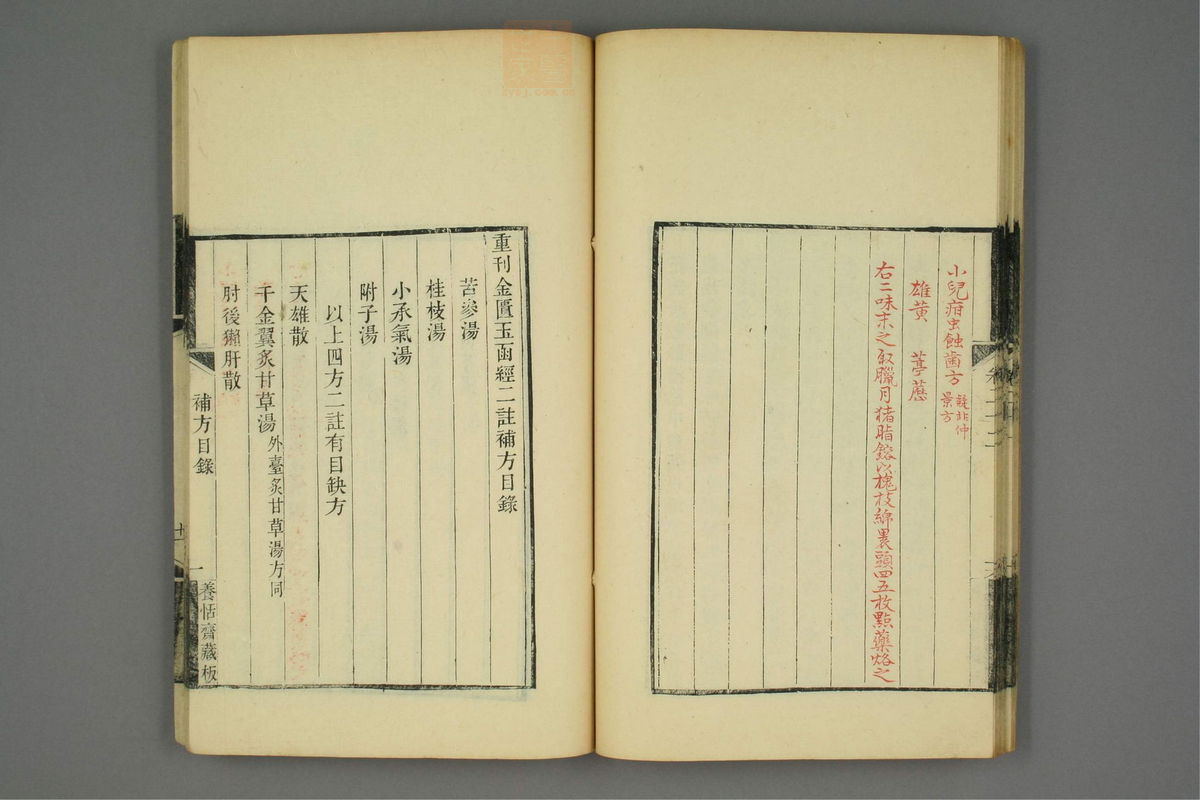 小兒疳虫蝕齒方 疑非仲
景方
雄黃 葶藶
右二味末之取臘月猪脂鎔以槐枝綿裹頭四五枚點藥烙之
重刊金匱玉函經二註補方目錄
苦參湯
桂枝湯
小承氣湯
附子湯
以上四方二註有目缺方
天雄散
千金翼炙甘草湯 外臺炙甘草湯方同
肘後獺肝散
補方目錄
一
養恬齋藏板